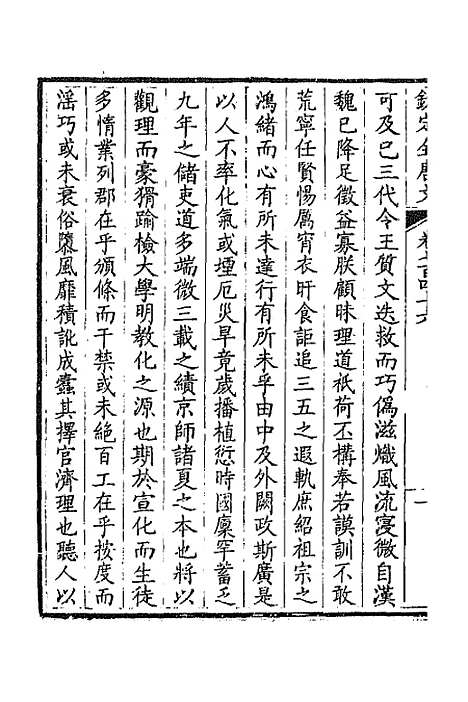 欽定全唐文
可及已三代令王質文迭救而巧偽滋熾風流寖微自漢
魏已降足徵益寡朕顧昧理道祇荷丕構奉若謨訓不敢
荒寧任賢惕厲宵衣旰食詎追三五之遐軌庶紹祖宗之
鴻緒而心有所未達行有所未孚由中及外闕政斯廣是
以人不率化氣或堙厄災旱竟歲播植愆時國廩罕蓄乏
九年之儲吏道多端微三載之績京師諸夏之本也將以
觀理而豪猾踰檢大學明教化之源也期於宣化而生徒
多惰業列郡在乎頒條而干禁或未絕百工在乎按度而
淫巧或未衰俗隳風靡積訛成蠹其擇官濟理也聽人以